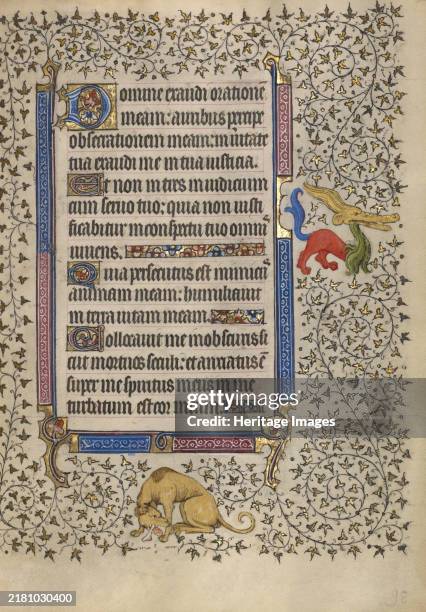 Domine exaudi oratione
meam: auribus percipe
obsecrationem meam: in veritate
tua exaudi me in tua iusticia.
Et non intres in iudicium
cum servo tuo: quia non iusti
ficabitur in conspectu tuo omnis
vivens.
Quia persecutus est inimicus
animam meam: humiliavit
in terra vitam meam.
Collocavit me in obscuris si
cut mortuos seculi: et anxiatus e
super me spiritus meus in me
turbatum est cor meum
gettyimages
Credit: Heritage Images
2181030400